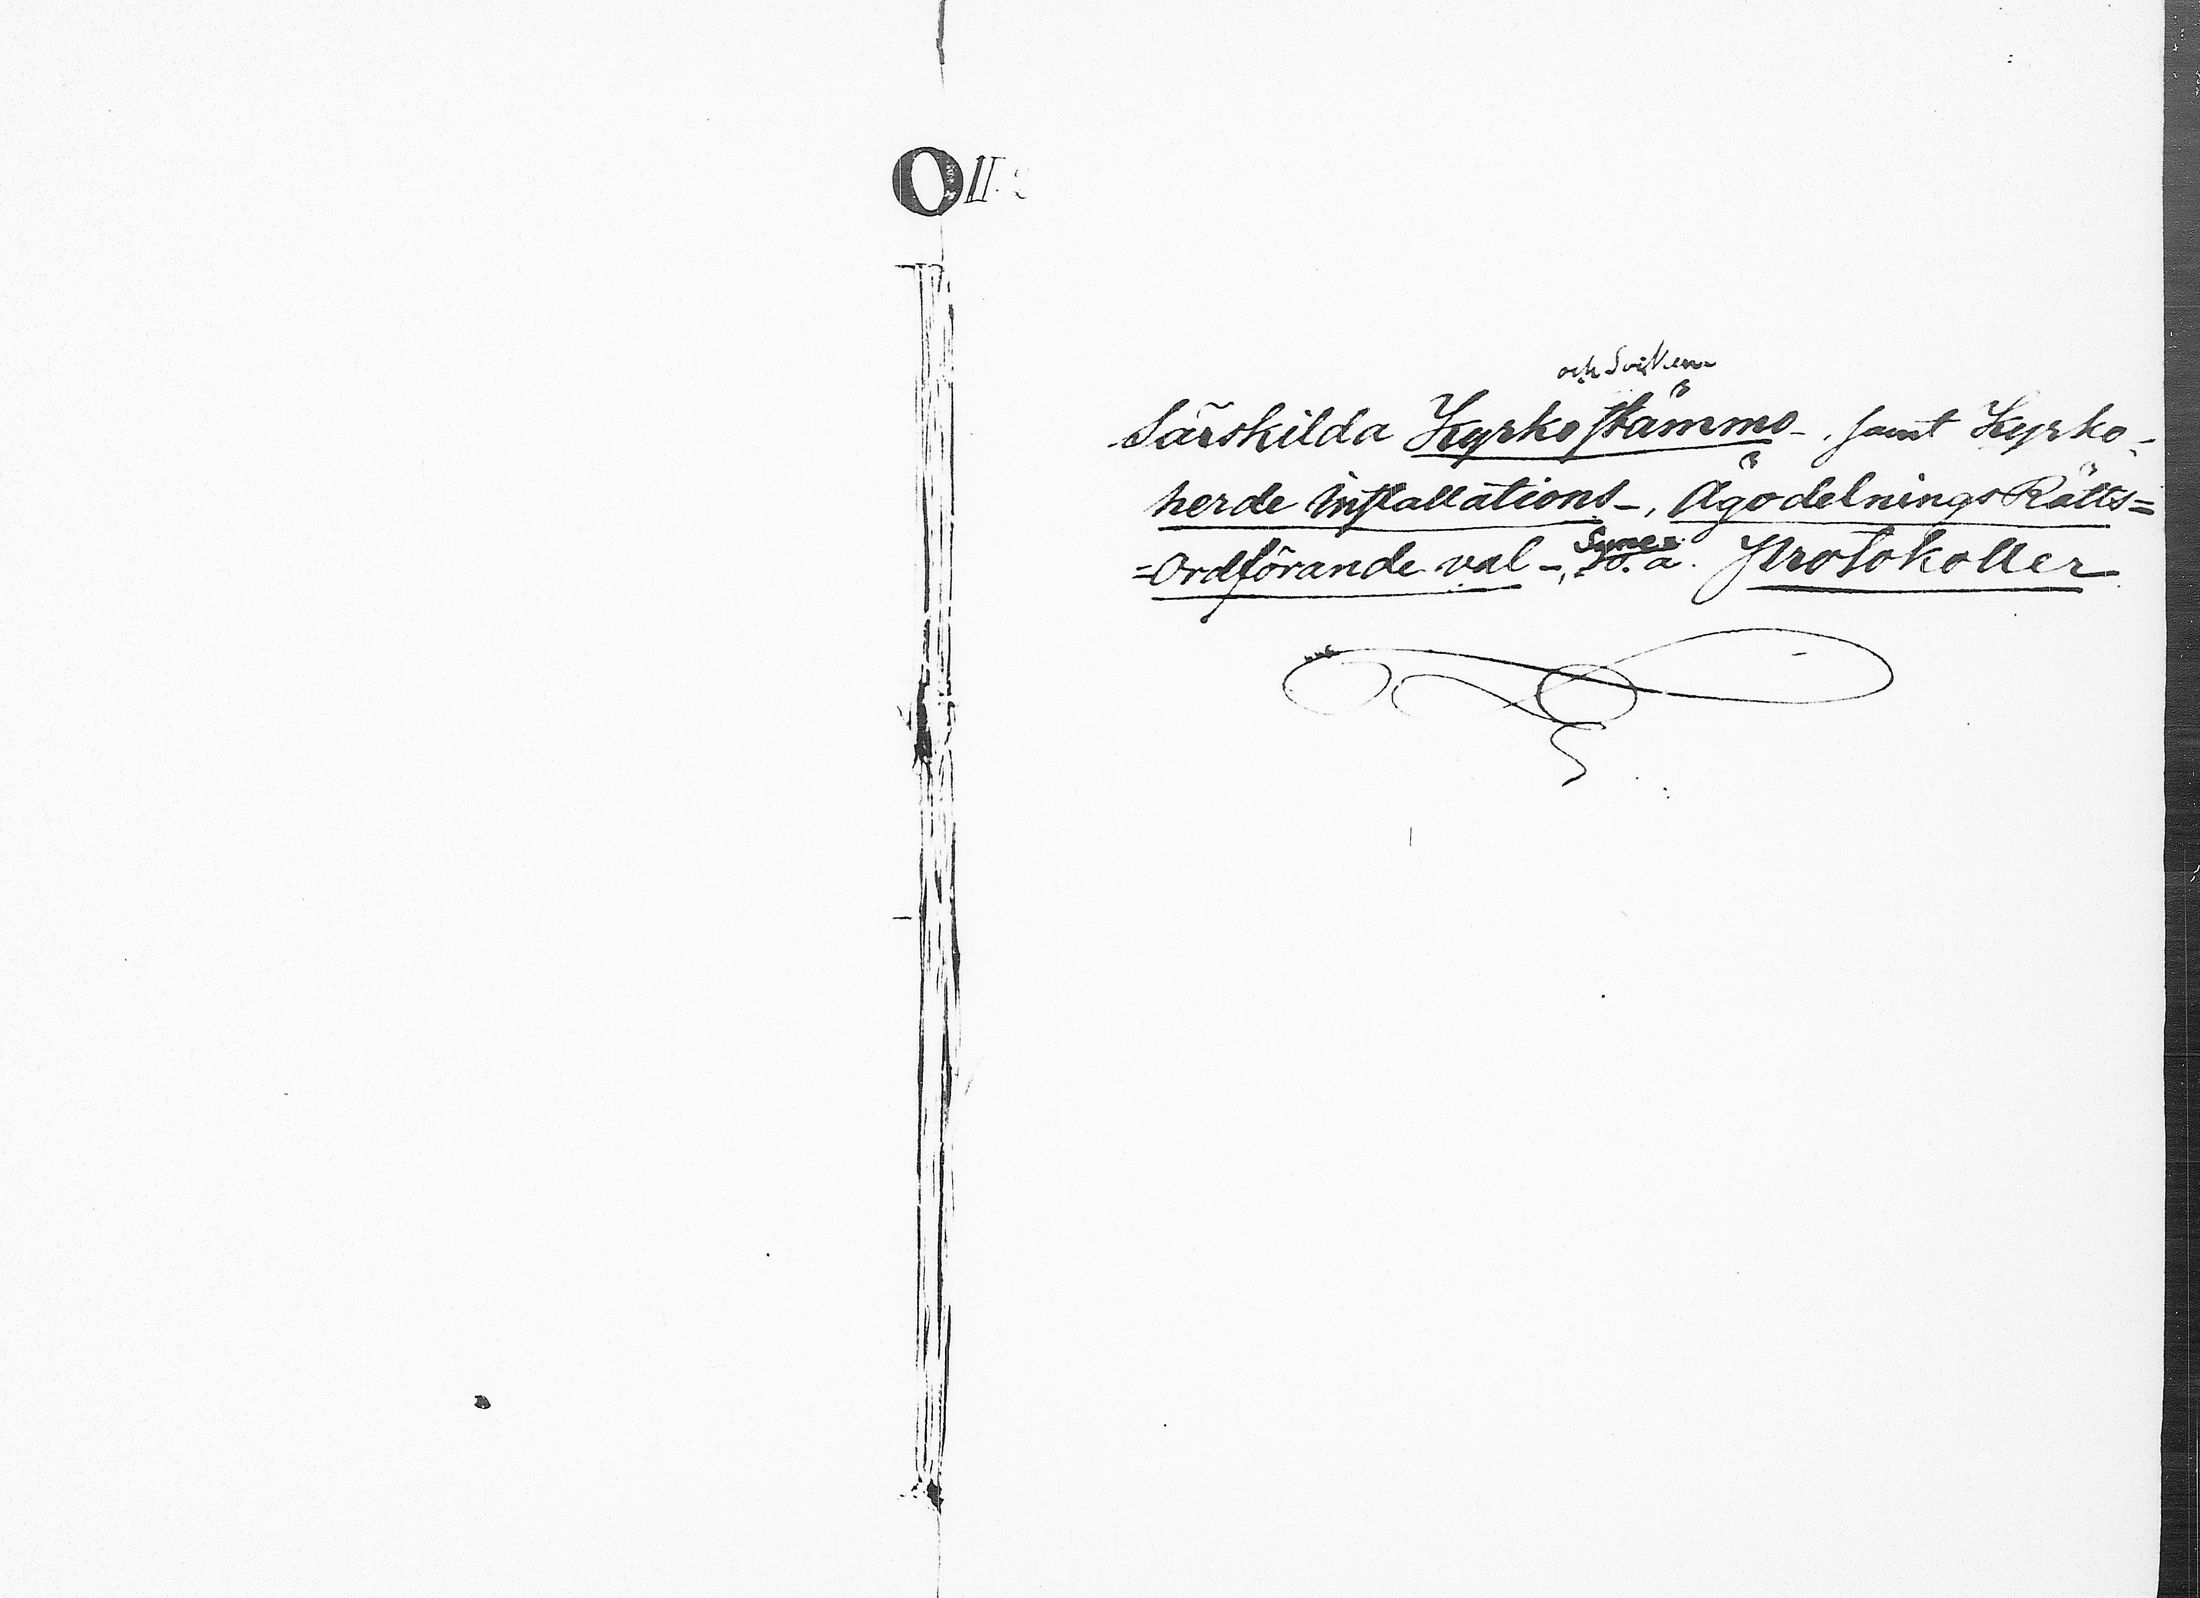 O II.
och
Särskilda Kyrkostämmo-, samt Kyrko-
herde installations-, ÄgodelningsRätts=
=Ordförande val-, Synes
o. a. Protokoller